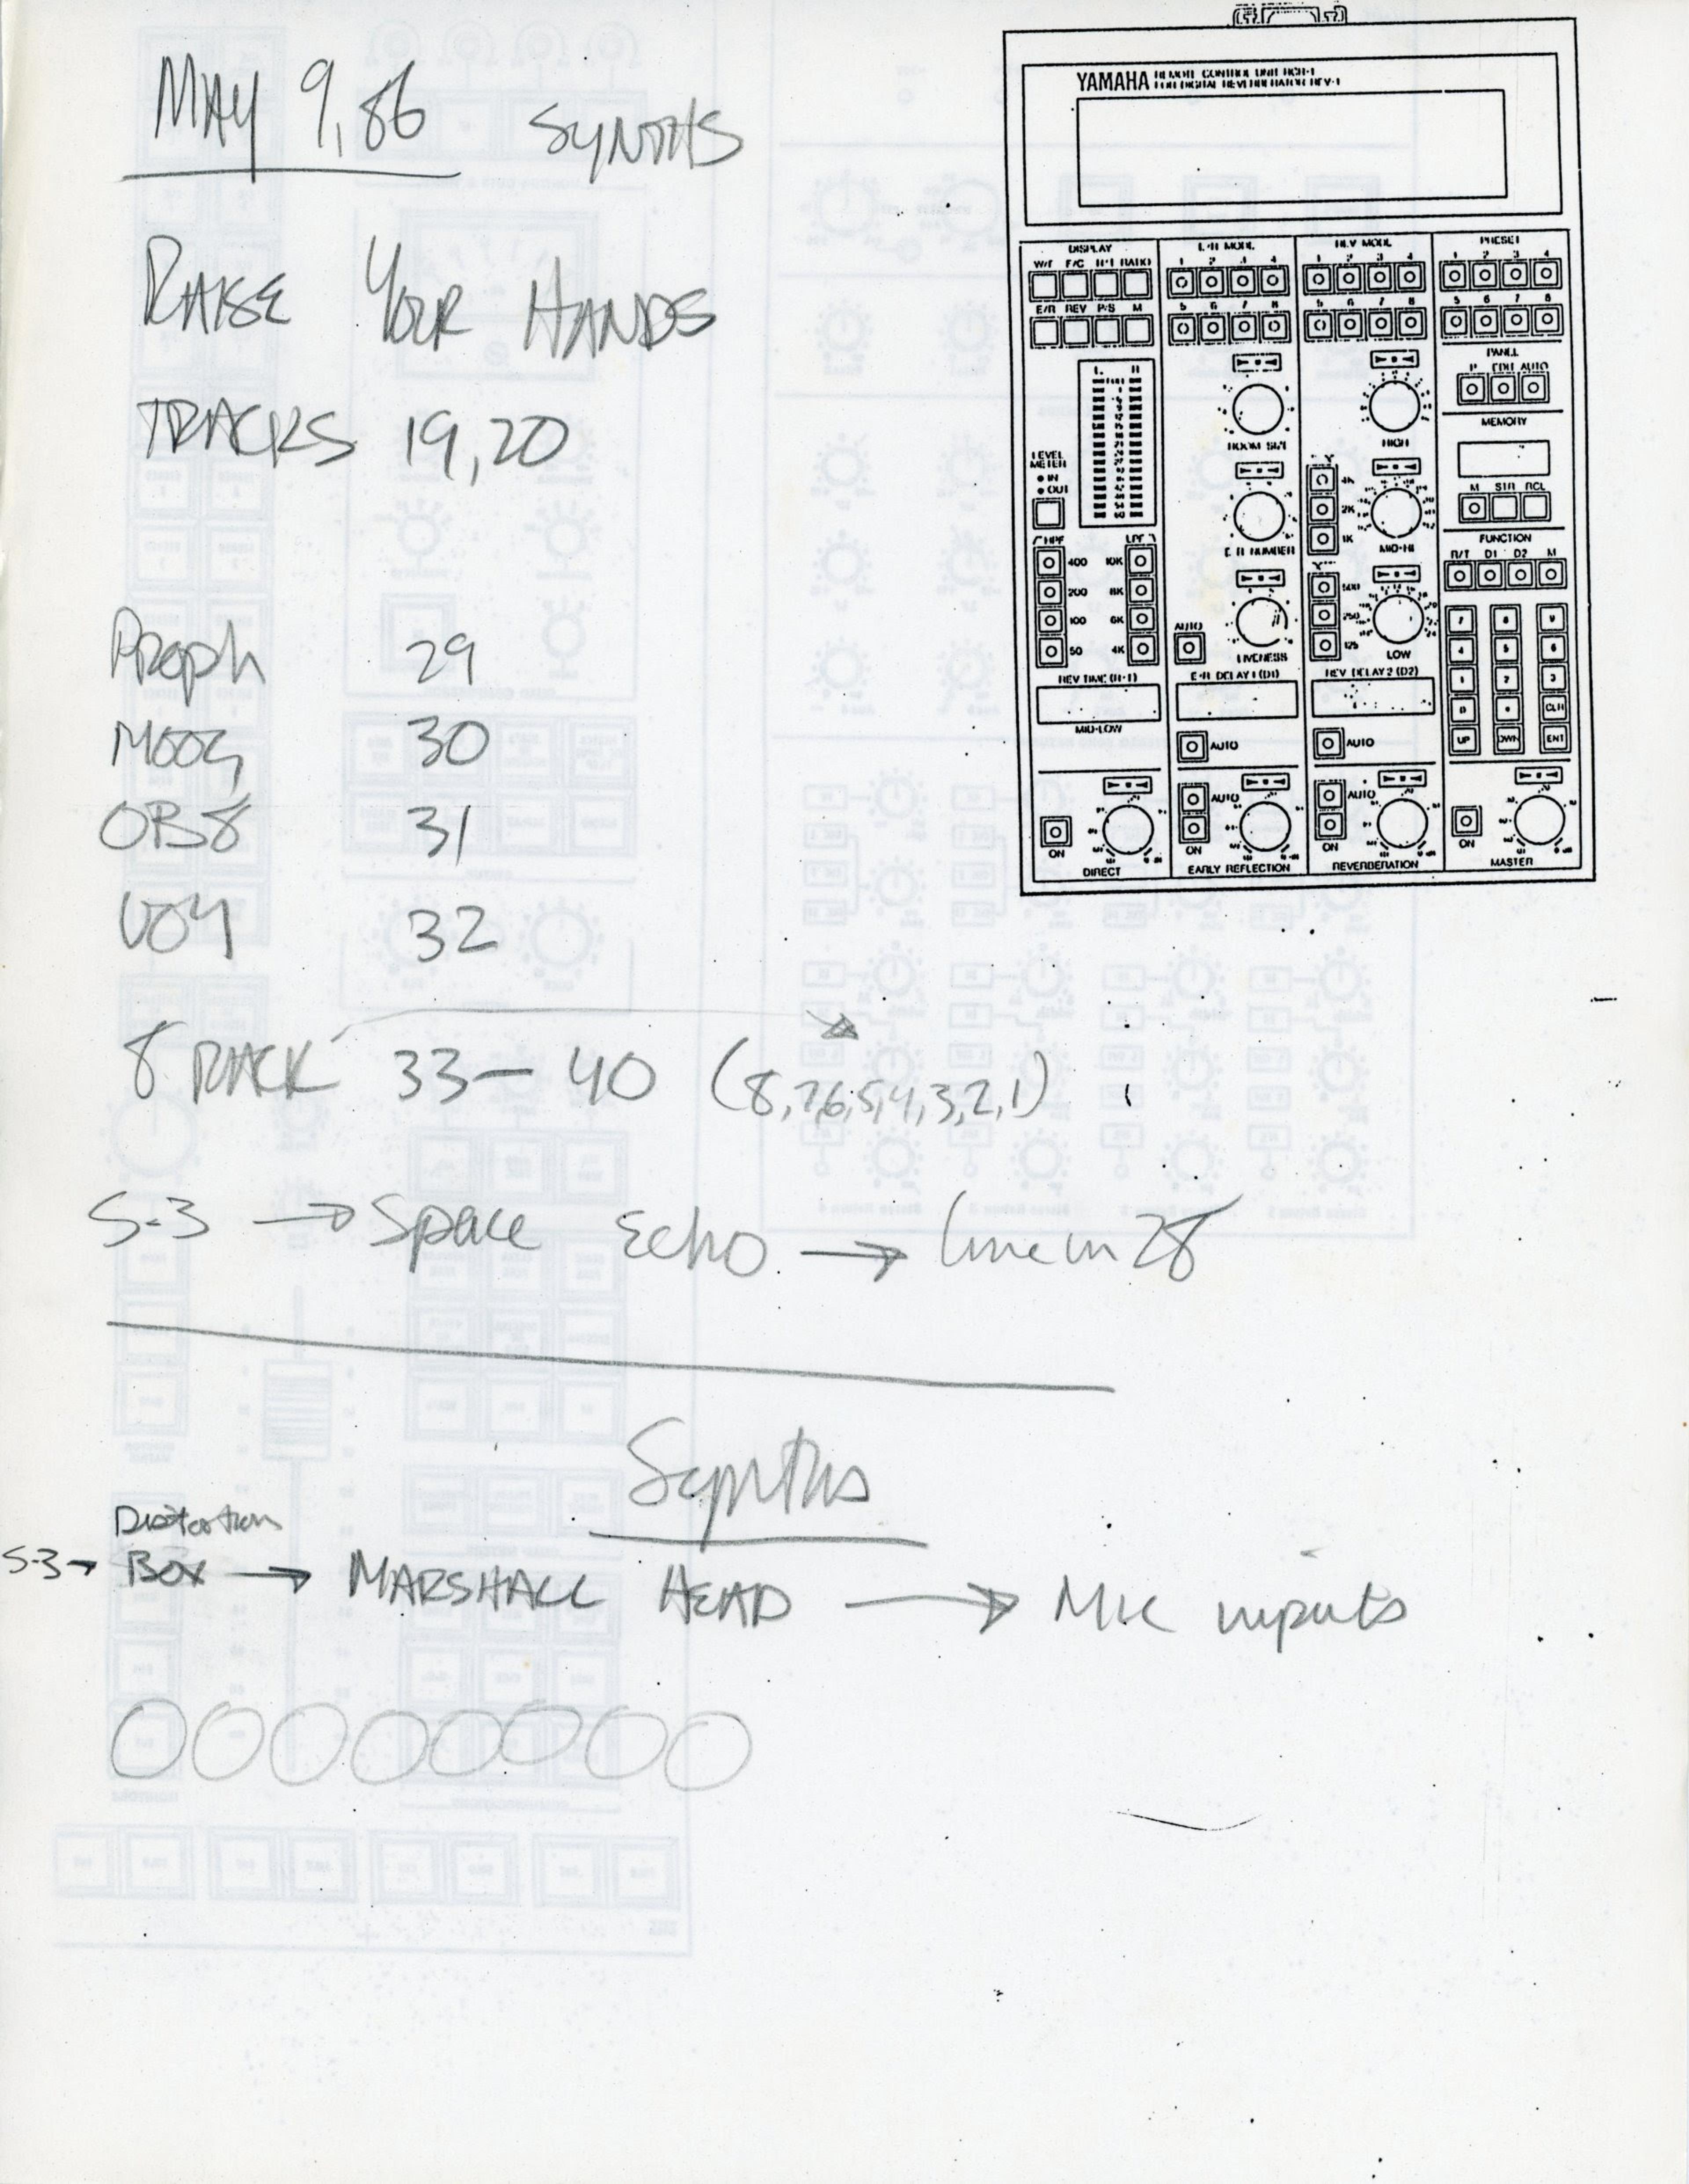 MAY 9,86 SYNTHS
RAISE YOUR HANDS
TRACKS 19,20
Proph 29
MOOG 30
OB8 31
VOY 32
8 RACK 33— 40 (8,7,6,5,4,3,2,1)
S-3 → Space Echo → line in 28
Synths
Distortion
S-3→ BOX → MARSHALL HEAD → Mic inputs
YAMAHA REMOTE CONTROL UNIT RCR-1
FOR DIGITAL REVERBERATOR REV-1
DISPLAY E/R MODE REV MODE PRESET
W/F F/C R·T RATIO 1 2 3 4 1 2 3 4 1 2 3 4
E/R REV P/S M 5 6 7 8 5 6 7 8 5 6 7 8
PANEL
P EDIT AUTO
L R
ROOM SIZE HIGH MEMORY
LEVEL
METER
IN
OUT
4K
2K
1K
M STR RCL
E·R NUMBER MID-HI FUNCTION
HPF LPF R/T D1 D2 M
400 10K
200 8K 500 7 8 9
100 6K 250 4 5 6
50 4K AUTO 125 1 2 3
LIVENESS LOW
REV TIME (R·T) E·R DELAY 1 (D1) REV DELAY 2 (D2) 0 • CLR
MID-LOW UP DWN ENT
AUTO AUTO
AUTO AUTO
ON ON ON ON
DIRECT EARLY REFLECTION REVERBERATION MASTER